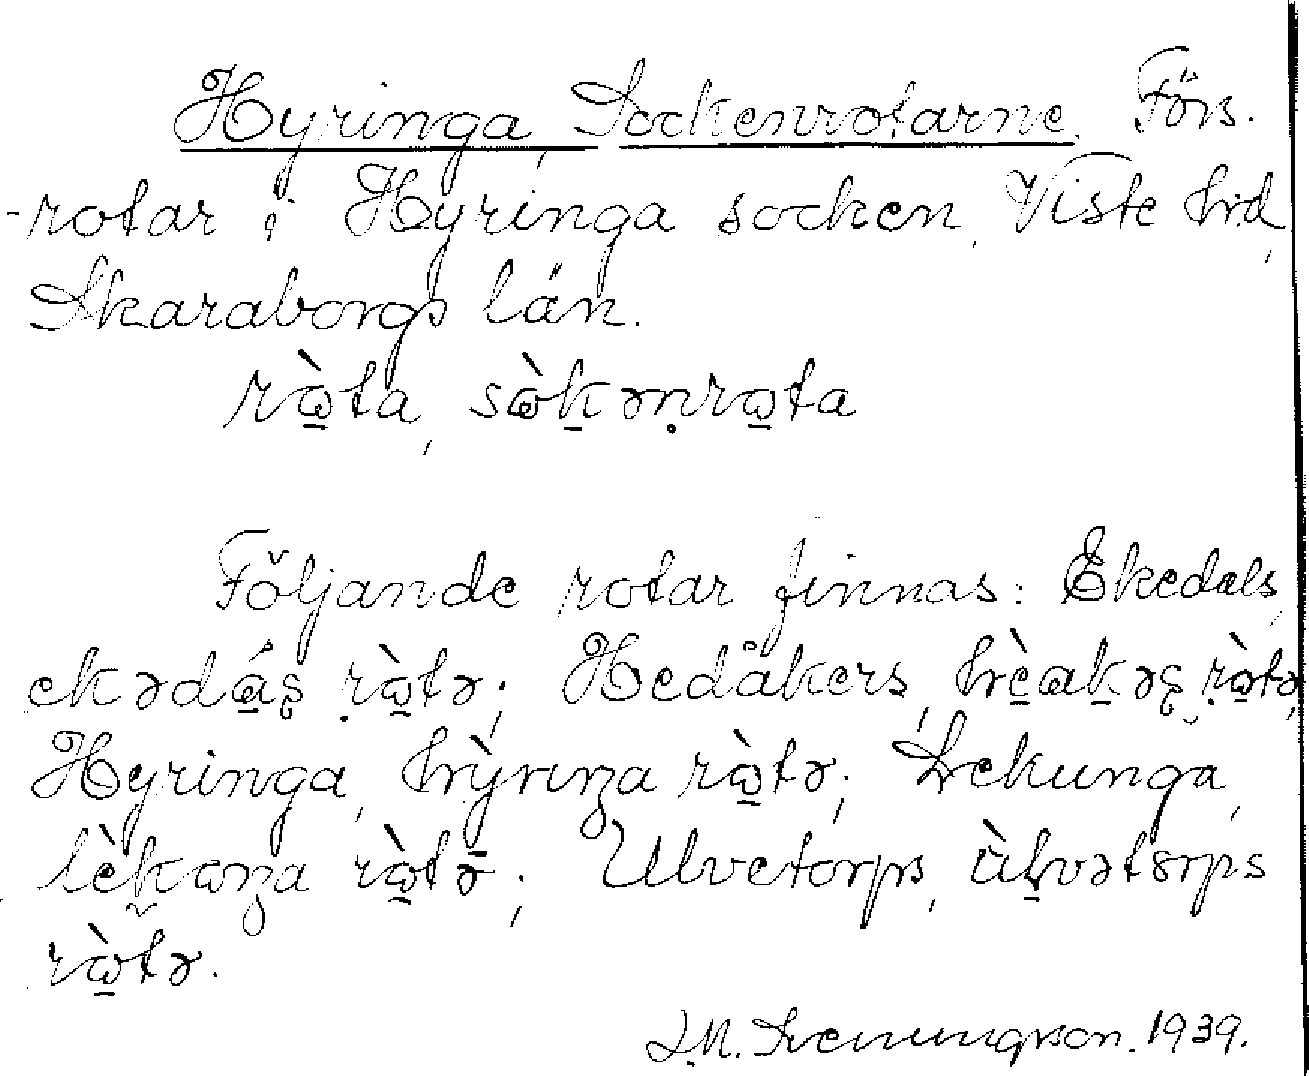 Hyringa, Sockenrotarne. Förs.
-rotar i Hyringa socken, Viste hrd,
Skaraborgs län.
rὼta, sὼkəṇrωta
Följande rotar finnas: Ekedals,
ekədάş rὼtə; Hedåkers, hèωkəş rὼtə;
Hyringa, hỳrıŋa rὼtə; Lekunga,
lèkωŋa rὼtə; Ulvetorps, ùlvətɵrps
rὼtə.
1939.